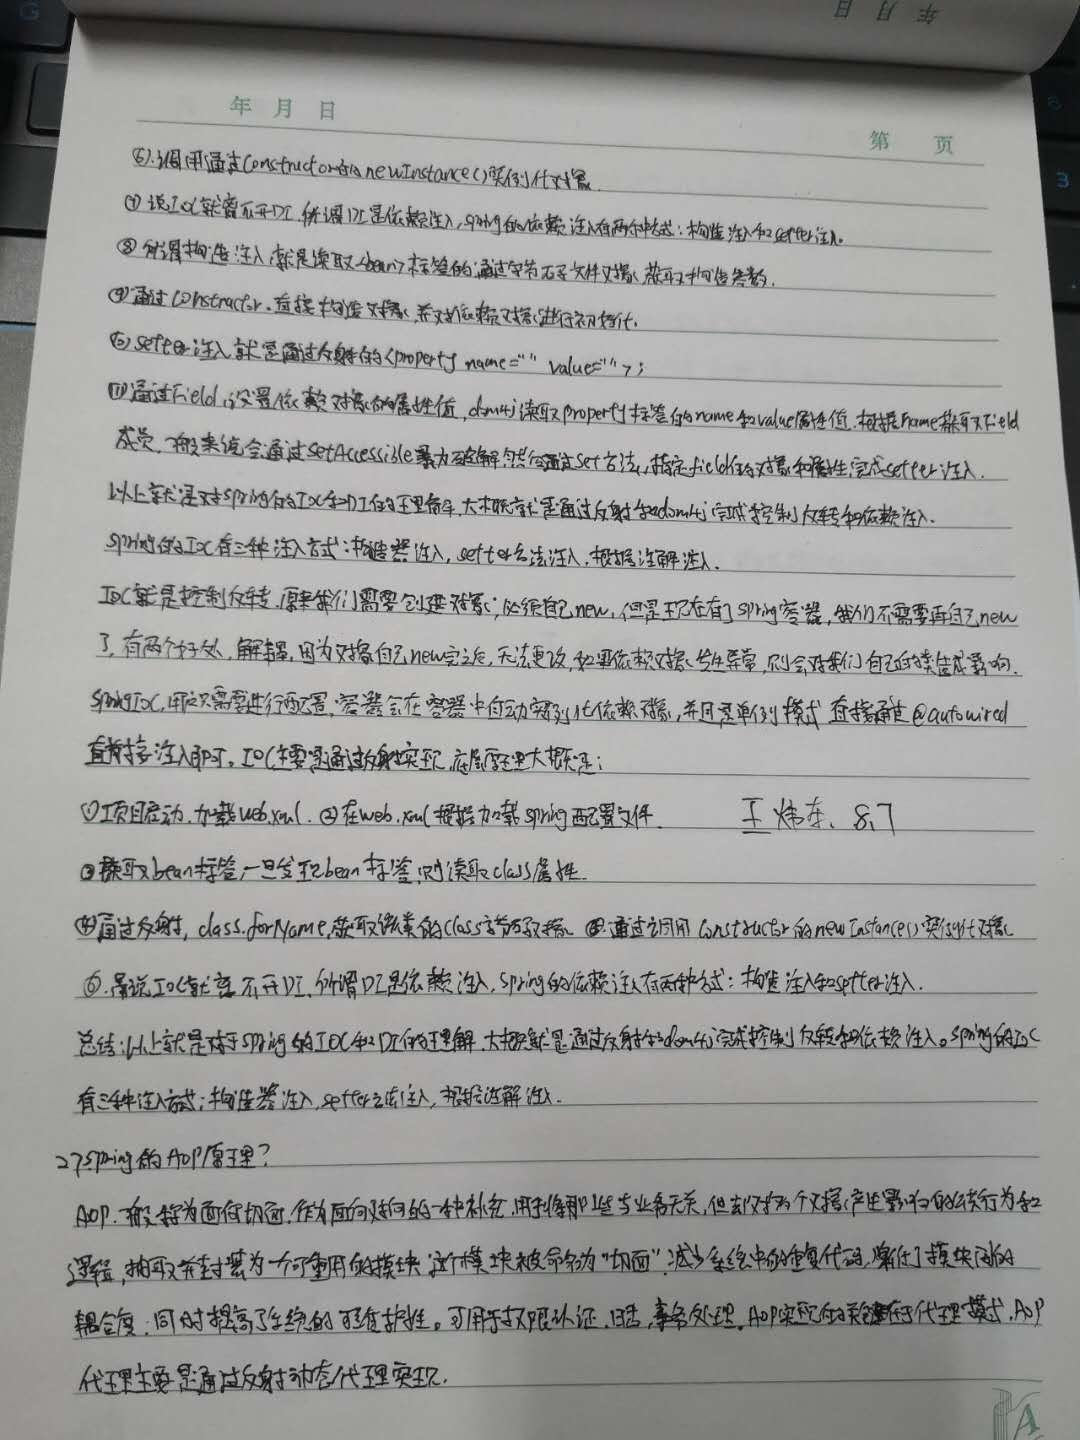 年 月 日
年 月 日
第 页
⑥.调用通过Constructor的newInstance()实例化对象.
⑦ 说IOC就离不开DI.所谓DI是依赖注入,spring的依赖注入有两种方式:构造注入和setter注入.
⑧ 所谓构造注入就是读取<bean>标签的,通过字节码文件对象,获取构造参数.
⑨通过Constructor.直接构造对象,并对依赖对象进行初始化.
⑩ setter注入就是通过反射的<property name="" value="">;
⑪通过Field,设置依赖对象的属性值,dom4j读取property标签的name和value属性值.根据name获取Field
成员,一般来说会通过setAccessible暴力破解.然后通过set方法,指定field的对象和属性,完成setter注入.
以上就是对spring的IOC和DI的理解,大概就是通过反射和dom4j完成控制反转和依赖注入.
spring的IOC有三种注入方式:构造器注入,setter方法注入,根据注解注入.
IOC就是控制反转,原来我们需要创建对象,必须自己new,但是现在有了spring容器,我们不需要再自己new
了,有两个好处,解耦,因为对象自己new完之后,无法更改,如果依赖对象发生异常,则会对我们自己的类造成影响.
springIOC,用户只需要进行配置,容器会在容器中自动实例化依赖对象,并且是单例模式.直接通过@autowired
直接注入即可。IOC主要是通过反射实现,底层原理大概是:
①项目启动.加载web.xml. ②在web.xml根据加载spring配置文件.
王炜东、8.7
③获取bean标签,一旦发现bean标签,则读取class属性.
④通过反射, class.forName,获取该类的class字节码对象. ⑤通过调用Constructor的newInstance()实例化对象.
⑥.再说IOC就离不开DI,所谓DI是依赖注入,spring的依赖注入有两种方式:构造注入和setter注入.
总结:以上就是对于spring的IOC和DI的理解,大概就是通过反射和dom4j完成控制反转和依赖注入。spring的IOC
有三种注入方式:构造器注入,setter方法注入,根据注解注入.
27.Spring的AOP原理?
AOP.一般称为面向切面,作为面向对向的一种补充,用于将那些与业务无关,但却对多个对象产生影响的公共行为和
逻辑,抽取并封装为一个可重用的模块.这个模块被命名为"切面".减少系统中的重复代码,降低了模块间的
耦合度,同时提高了系统的可维护性。可用于权限认证、日志、事务处理。AOP实现的关键在于代理模式.AOP
代理主要是通过反射动态代理实现.